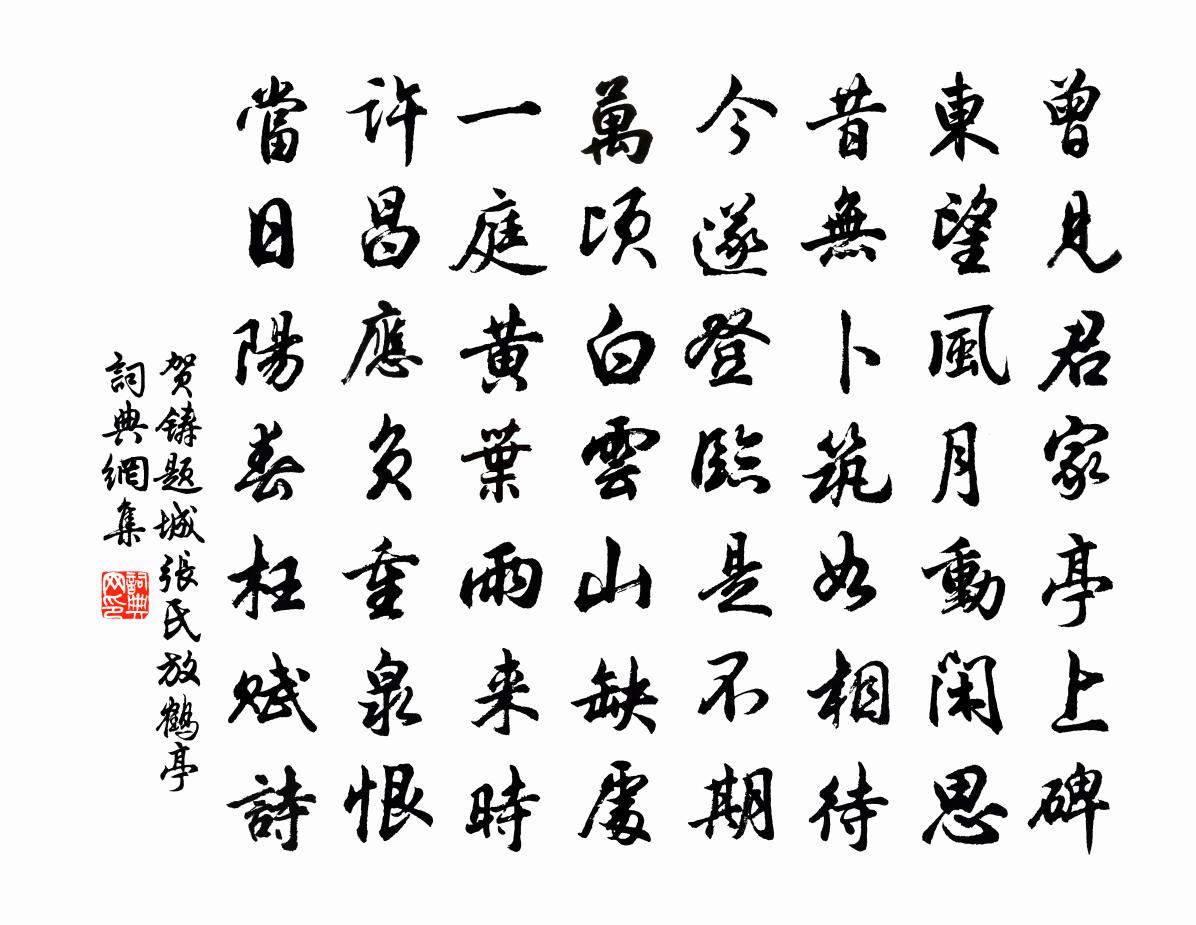 曾見君家亭上碑
東望風月動閑思
昔無卜筑如相待
今遂登臨是不期
萬頃白雲山缺處
一庭黃葉雨来時
許昌應負重泉恨
當日陽春枉賦詩
贺铸题城張民放鶴亭
詞典網集
詞典網印